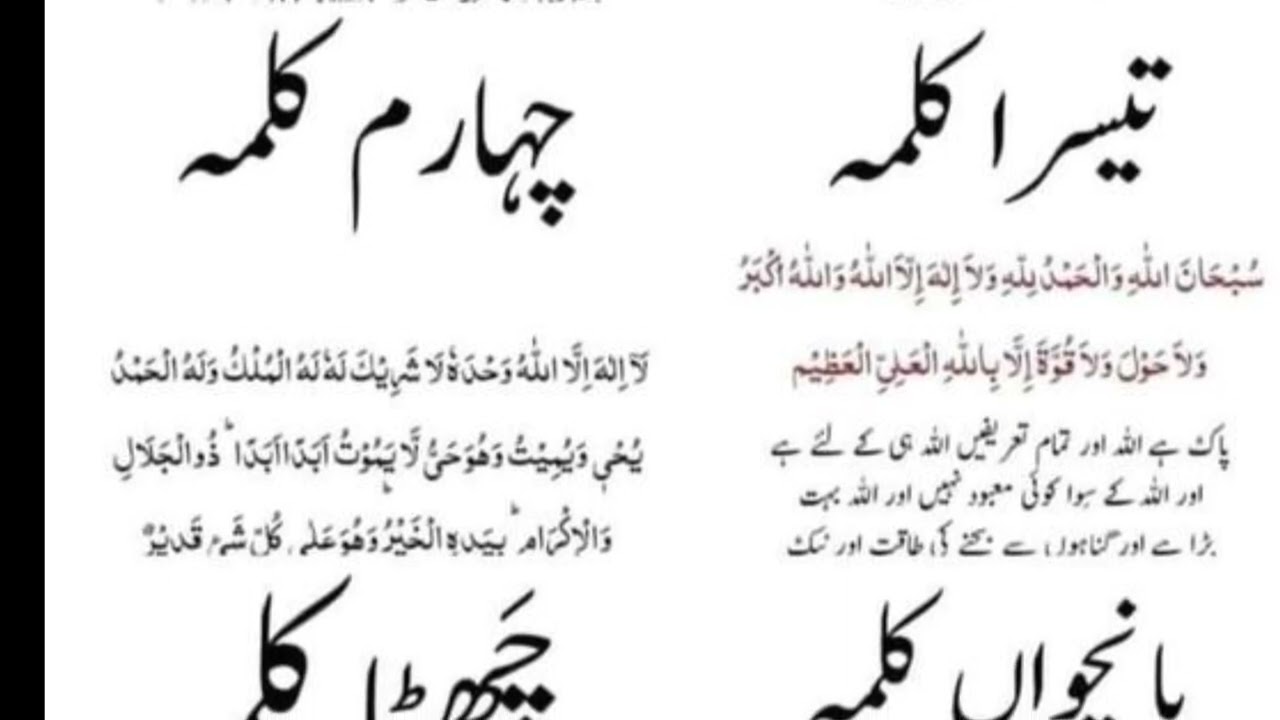 تیسرا کلمہ
سُبْحَانَ اللّٰهِ وَالْحَمْدُ لِلّٰهِ وَلَا إِلٰهَ إِلَّا اللّٰهُ وَاللّٰهُ أَكْبَرُ
وَلَا حَوْلَ وَلَا قُوَّةَ إِلَّا بِاللّٰهِ الْعَلِيِّ الْعَظِيْمِ
پاک ہے اللہ اور تمام تعریفیں اللہ ہی کے لئے ہے
اور اللہ کے سوا کوئی معبود نہیں اور اللہ بہت
بڑا ہے اور گناہوں سے بچنے کی طاقت اور نیک
چہارم کلمہ
لَآ اِلٰهَ اِلَّا اللّٰهُ وَحْدَهٗ لَا شَرِيْكَ لَهٗ لَهُ الْمُلْكُ وَلَهُ الْحَمْدُ
يُحْيٖ وَيُمِيْتُ وَهُوَ حَیٌّ لَّا يَمُوْتُ اَبَدًا اَبَدًا ؕ ذُو الْجَلَالِ
وَالْاِكْرَامِ ؕ بِيَدِهِ الْخَيْرُ وَهُوَ عَلٰى كُلِّ شَیْءٍ قَدِيْرٌ
پانچواں کلمہ
چھٹا کلمہ